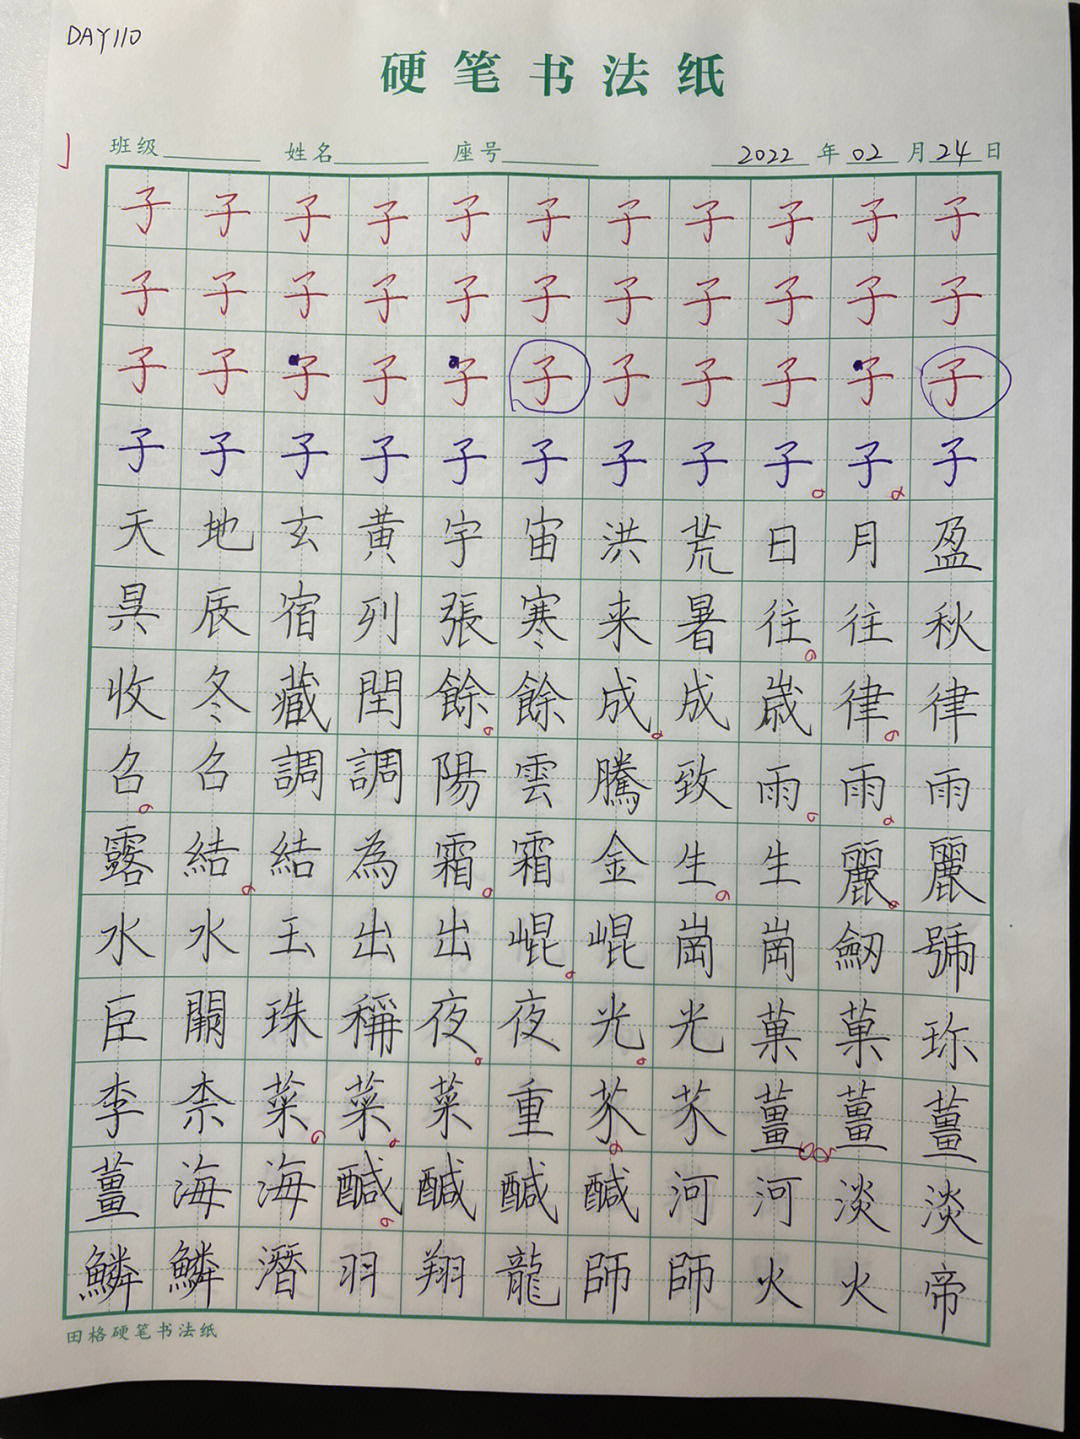 DAY110
硬笔书法纸
亅 班级 姓名 座号 2022 年 02 月 24 日
子子子子子子子子子子子
子子子子子子子子子子子
子子子子子子子子子子子
子子子子子子子子子子子
天地玄黄宇宙洪荒日月盈
昃辰宿列張寒来暑往往秋
收冬藏閏餘餘成成歳律律
召召調調陽雲騰致雨雨雨
露結結為霜霜金生生麗麗
水水玉出出崐崐崗崗劒號
巨闕珠稱夜夜光光菓菓珎
李柰菜菜菜重芥芥薑薑薑
薑海海醎醎醎醎河河淡淡
鱗鱗潛羽翔龍師師火火帝
田格硬笔书法纸